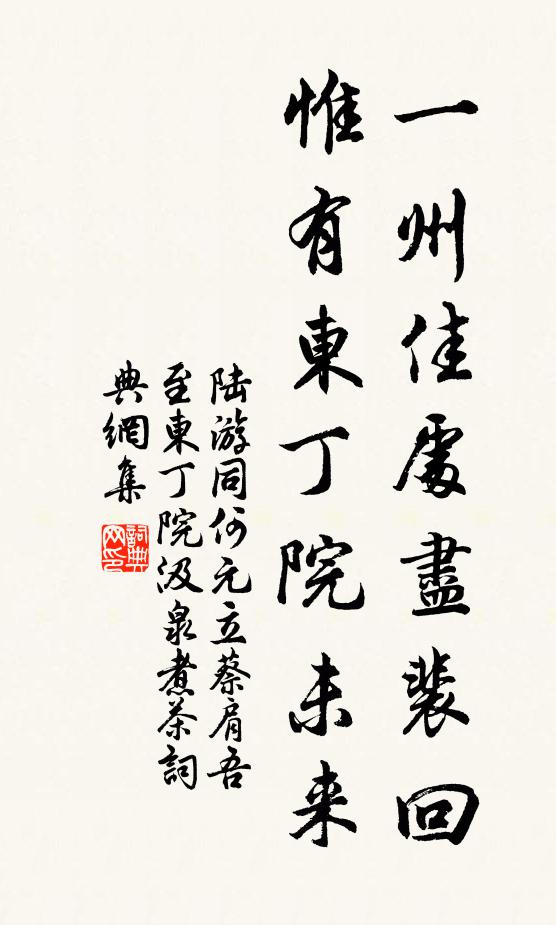 一州佳處盡裴回
惟有東丁院未来
陆游同何元立蔡肩吾
至東丁院汲泉煮茶詞
典網集
詞典网印